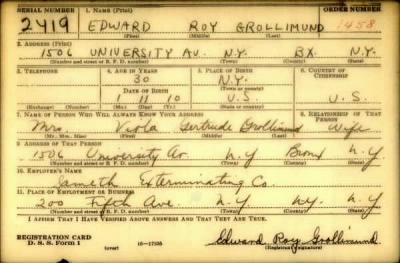 SERIAL NUMBER 1. NAME (Print) ORDER NUMBER
2419 EDWARD ROY GROLLIMUND 1458
(First) (Middle) (Last)
2. ADDRESS (Print)
1506 UNIVERSITY AV. N.Y. BX. N.Y.
(Number and street or R. F. D. number) (Town) (County) (State)
3. TELEPHONE 4. AGE IN YEARS 5. PLACE OF BIRTH 6. COUNTRY OF CITIZENSHIP
30 N.Y.
DATE OF BIRTH (Town or county)
1 11 10 U.S. U.S.
(Exchange) (Number) (Mo.) (Day) (Yr.) (State or country)
7. NAME OF PERSON WHO WILL ALWAYS KNOW YOUR ADDRESS 8. RELATIONSHIP OF THAT PERSON
Mrs. Viola Gertrude Grollimund Wife
(Mr., Mrs., Miss) (First) (Middle) (Last)
9. ADDRESS OF THAT PERSON
1506 University Av. N.Y Bronx N.Y
(Number and street or R. F. D. number) (Town) (County) (State)
10. EMPLOYER'S NAME
Exterminating Co.
11. PLACE OF EMPLOYMENT OR BUSINESS
200 Fifth Ave. N.Y NY. N.Y
(Number and street or R. F. D. number) (Town) (County) (State)
I AFFIRM THAT I HAVE VERIFIED ABOVE ANSWERS AND THAT THEY ARE TRUE.
REGISTRATION CARD
D. S. S. Form 1 (over) 16-17105 Edward Roy Grollimund
(Registrant's signature)